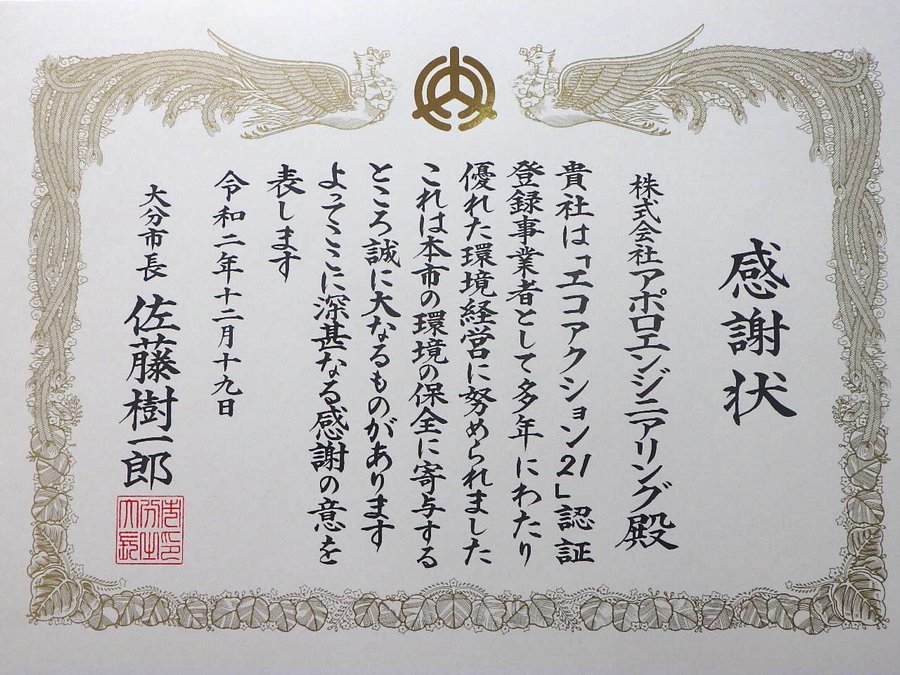 感謝状
株式会社アポロエンジニアリング殿
貴社は「エコアクション21」認証
登録事業者として多年にわたり
優れた環境経営に努められました
これは本市の環境の保全に寄与する
ところ誠に大なるものがあります
よってここに深甚なる感謝の意を
表します
令和二年十二月十九日
大分市長 佐藤樹一郎